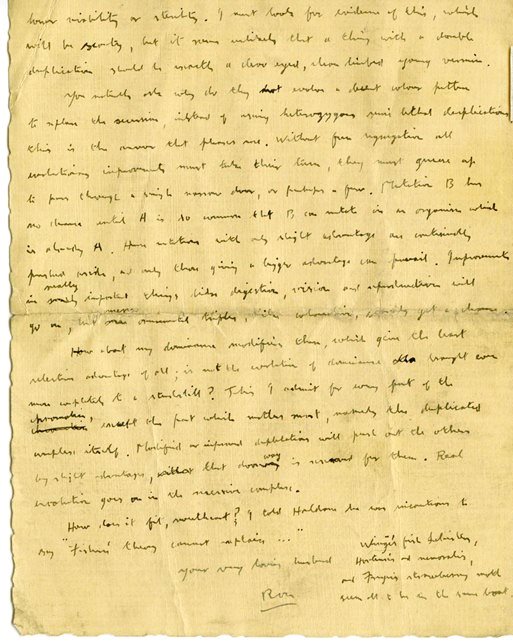 lower visibility or sterility. I must look for evidence of this, which
will be scanty, but it seems unlikely that a thing with a double
duplication should be exactly a clear eyed, clean limbed young vermin.
You naturally ask why do they not evolve a decent colour pattern
to replace the recessive, instead of using heterozygous semi lethal duplications,
this is the answer that pleases me. Without free segregation all
evolutionary improvements must take their turn, they must queue up
to pass through a single narrow door, or perhaps a few. Mutation B has
no chance until A is so common that B can mutate in an organism which
is already A. Hence mutations with only slight advantage are continually
pushed aside, and only those giving a bigger advantage can prevail. Improvements
in really important things like digestion, vision and reproduction will
go on, but mere ornamental trifles, like coloration, scarcely get a chance.
How about my dominance modifiers then, which give the least
selective advantage of all; is not the evolution of dominance brought even
more completely to a standstill? This I admit for every part of the
except the part which matters most, namely the duplicated
complex itself. Modified or improved duplications will push out the others
by slight advantages, that doorway is reserved for them. Real
evolution goes on in the recessive complex.
How does it fit, sweetheart? I told Haldane he was incautious to
say "Fisher's theory cannot explain ..."
Your very loving husband
Ron
Winge's fish Lebistes,
Hortensis and nemoralis,
and Fryer's strawberry moth
seem all to be in the same boat.